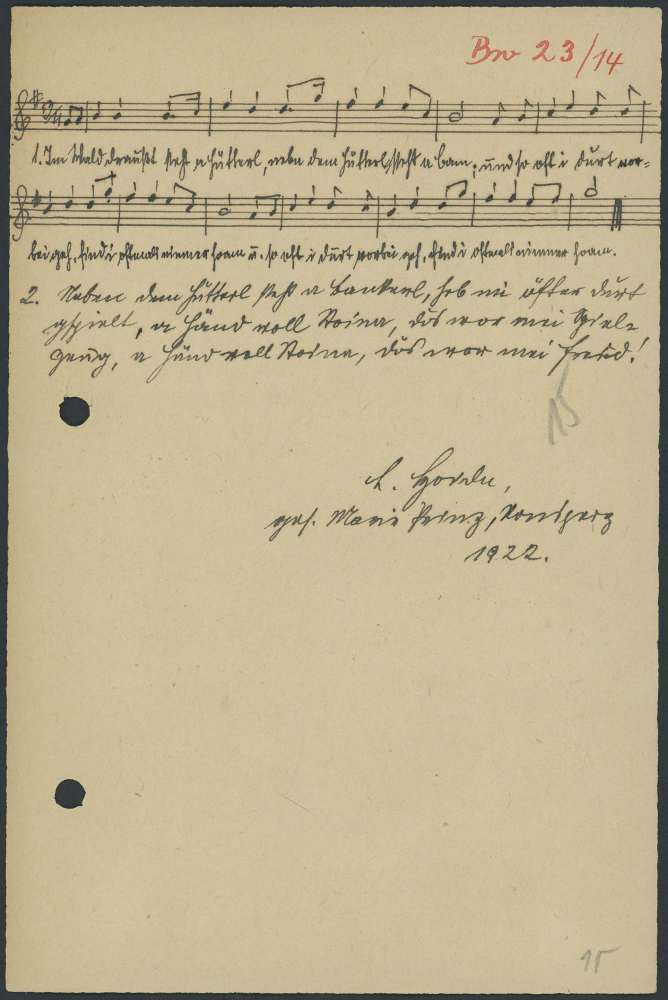 Bw 23/14
1. Im Wald draußt steht a Hütterl, nebn dem Hütterl steht a Bam; und so oft i durt vor=
bei geh, find i oftmals nimmer hoam u. so oft i durt vorbei geh, find i oftmals nimmer hoam.
2. Neben dem Hütterl steht a Bankerl, hob mi öfter durt
gspielt, a Händ voll Stoina, dös wor mei Spiel=
zeug, a Händ voll Stoina, dös wor mei Freud!
15
ges. Marie Prinz, Ronsperg
1922.
15